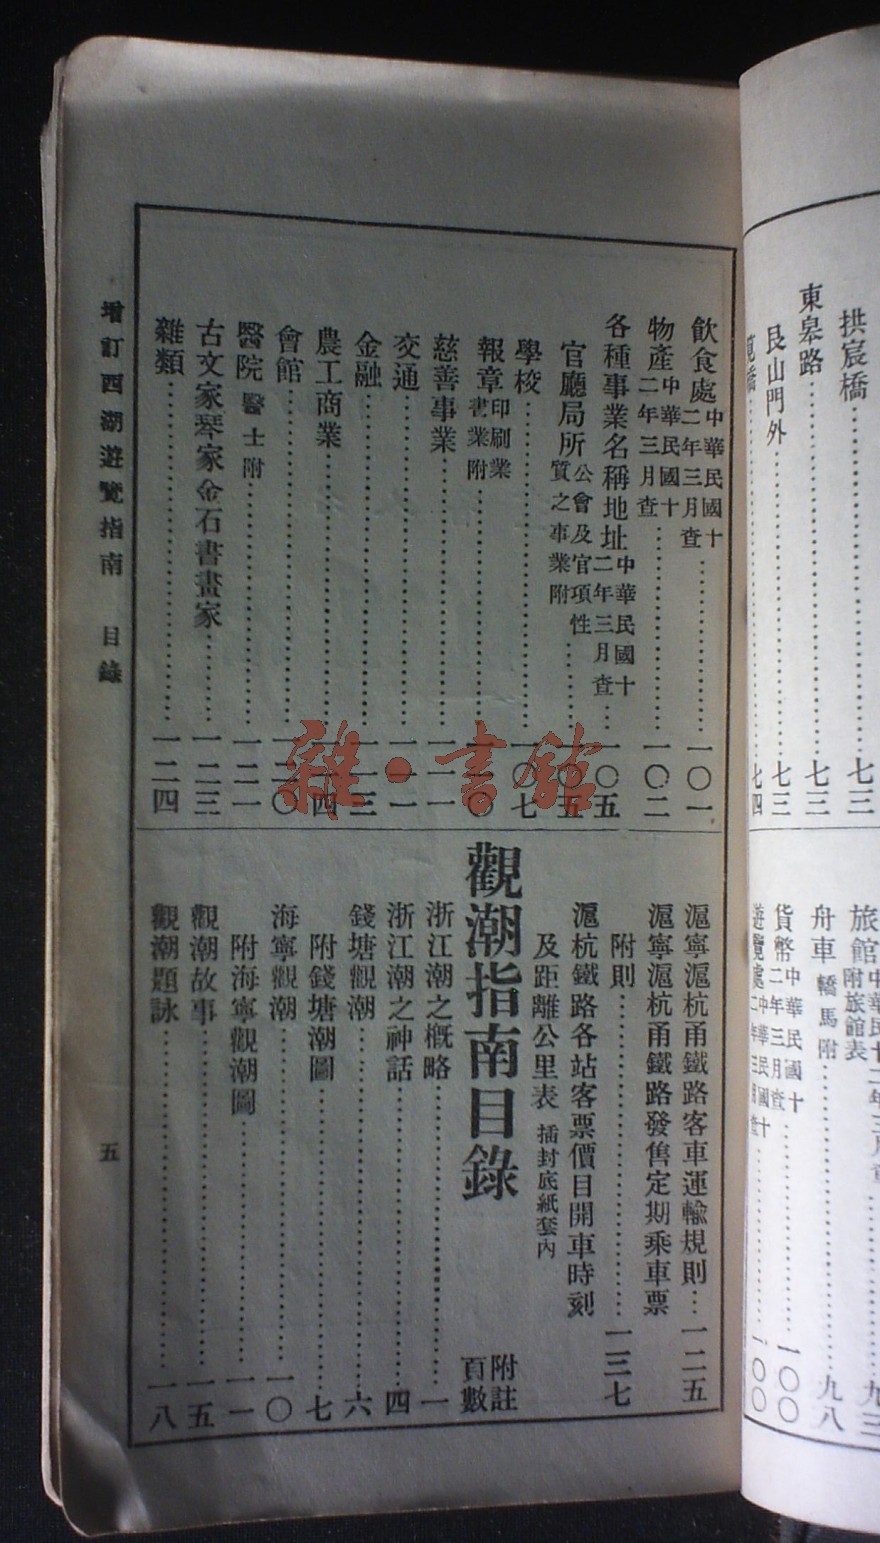 拱宸橋……七三
東皋路……七三
艮山門外……七三
筧橋……七四
旅館 附旅館表
舟車 轎馬附……九八
貨幣 中華民國十二年三月查……一〇〇
遊覽處 中華民國十二年三月查……一〇〇
飲食處 中華民國十二年三月查……一〇一
物產 中華民國十二年三月查……一〇二
各種事業名稱地址 中華民國十二年三月查…一〇五
官廳局所 公會及官項性質之事業附……一〇五
學校……一〇七
報章 印刷業書業附……一一〇
慈善事業……一一一
交通……一一一
金融……一一三
農工商業……一一四
會館……一二〇
醫院 醫士附……一二一
古文家琴家金石書畫家……一二三
雜類……一二四
滬寧滬杭甬鐵路客車運輸規則…一二五
滬寧滬杭甬鐵路發售定期乘車票
附則……一三七
滬杭鐵路各站客票價目開車時刻
及距離公里表 插封底紙套內
觀潮指南目錄 附註頁數
浙江潮之概略……一
浙江潮之神話……四
錢塘觀潮……六
附錢塘潮圖……七
海寧觀潮……一〇
附海寧觀潮圖……一一
觀潮故事……一五
觀潮題詠……一八
增訂西湖遊覽指南 目錄 五
雜·書館